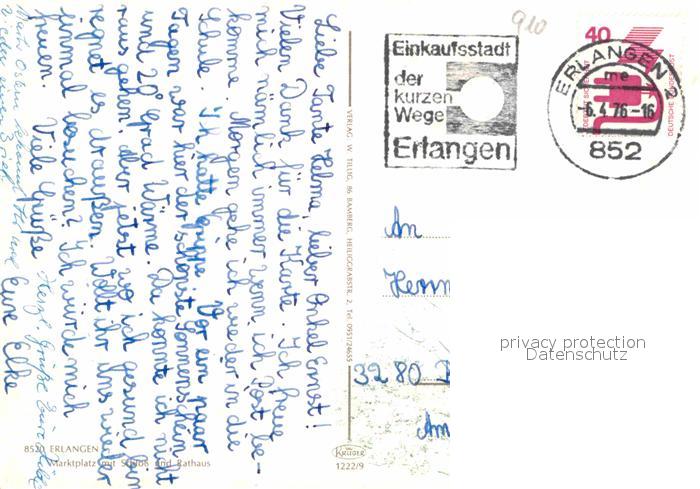 Liebe Tante Helma, lieber Onkel Ernst!
Vielen Dank für die Karte. Ich freue
mich nämlich immer wenn ich Post be-
komme. Morgen gehe ich wieder in die
Schule. Ich hatte Grippe. Vor ein paar
Tagen war hier der schönste Sonnenschein
und 20 Grad Wärme. Da konnte ich nicht
raus gehen, aber jetzt wo ich gesund bin
regnet es draußen. Wollt ihr uns wieder
einmal besuchen? Ich würde mich
freuen. Viele Grüße Eure Elke
Nach Ostern
Herzl. Grüße
8520 ERLANGEN
Marktplatz mit Schloß und Rathaus
VERLAG W. TILLIG, 86 BAMBERG, HEILIGGRABSTR. 2, Tel. 0951/24655
KRÜGER
1222/9
910
Einkaufsstadt
der
kurzen
Wege
Erlangen
40
DEUTSCHE BUNDESPOST
ERLANGEN 2
me
-6.4.76-16
852
An
Herrn
3280
Am
privacy protection
Datenschutz